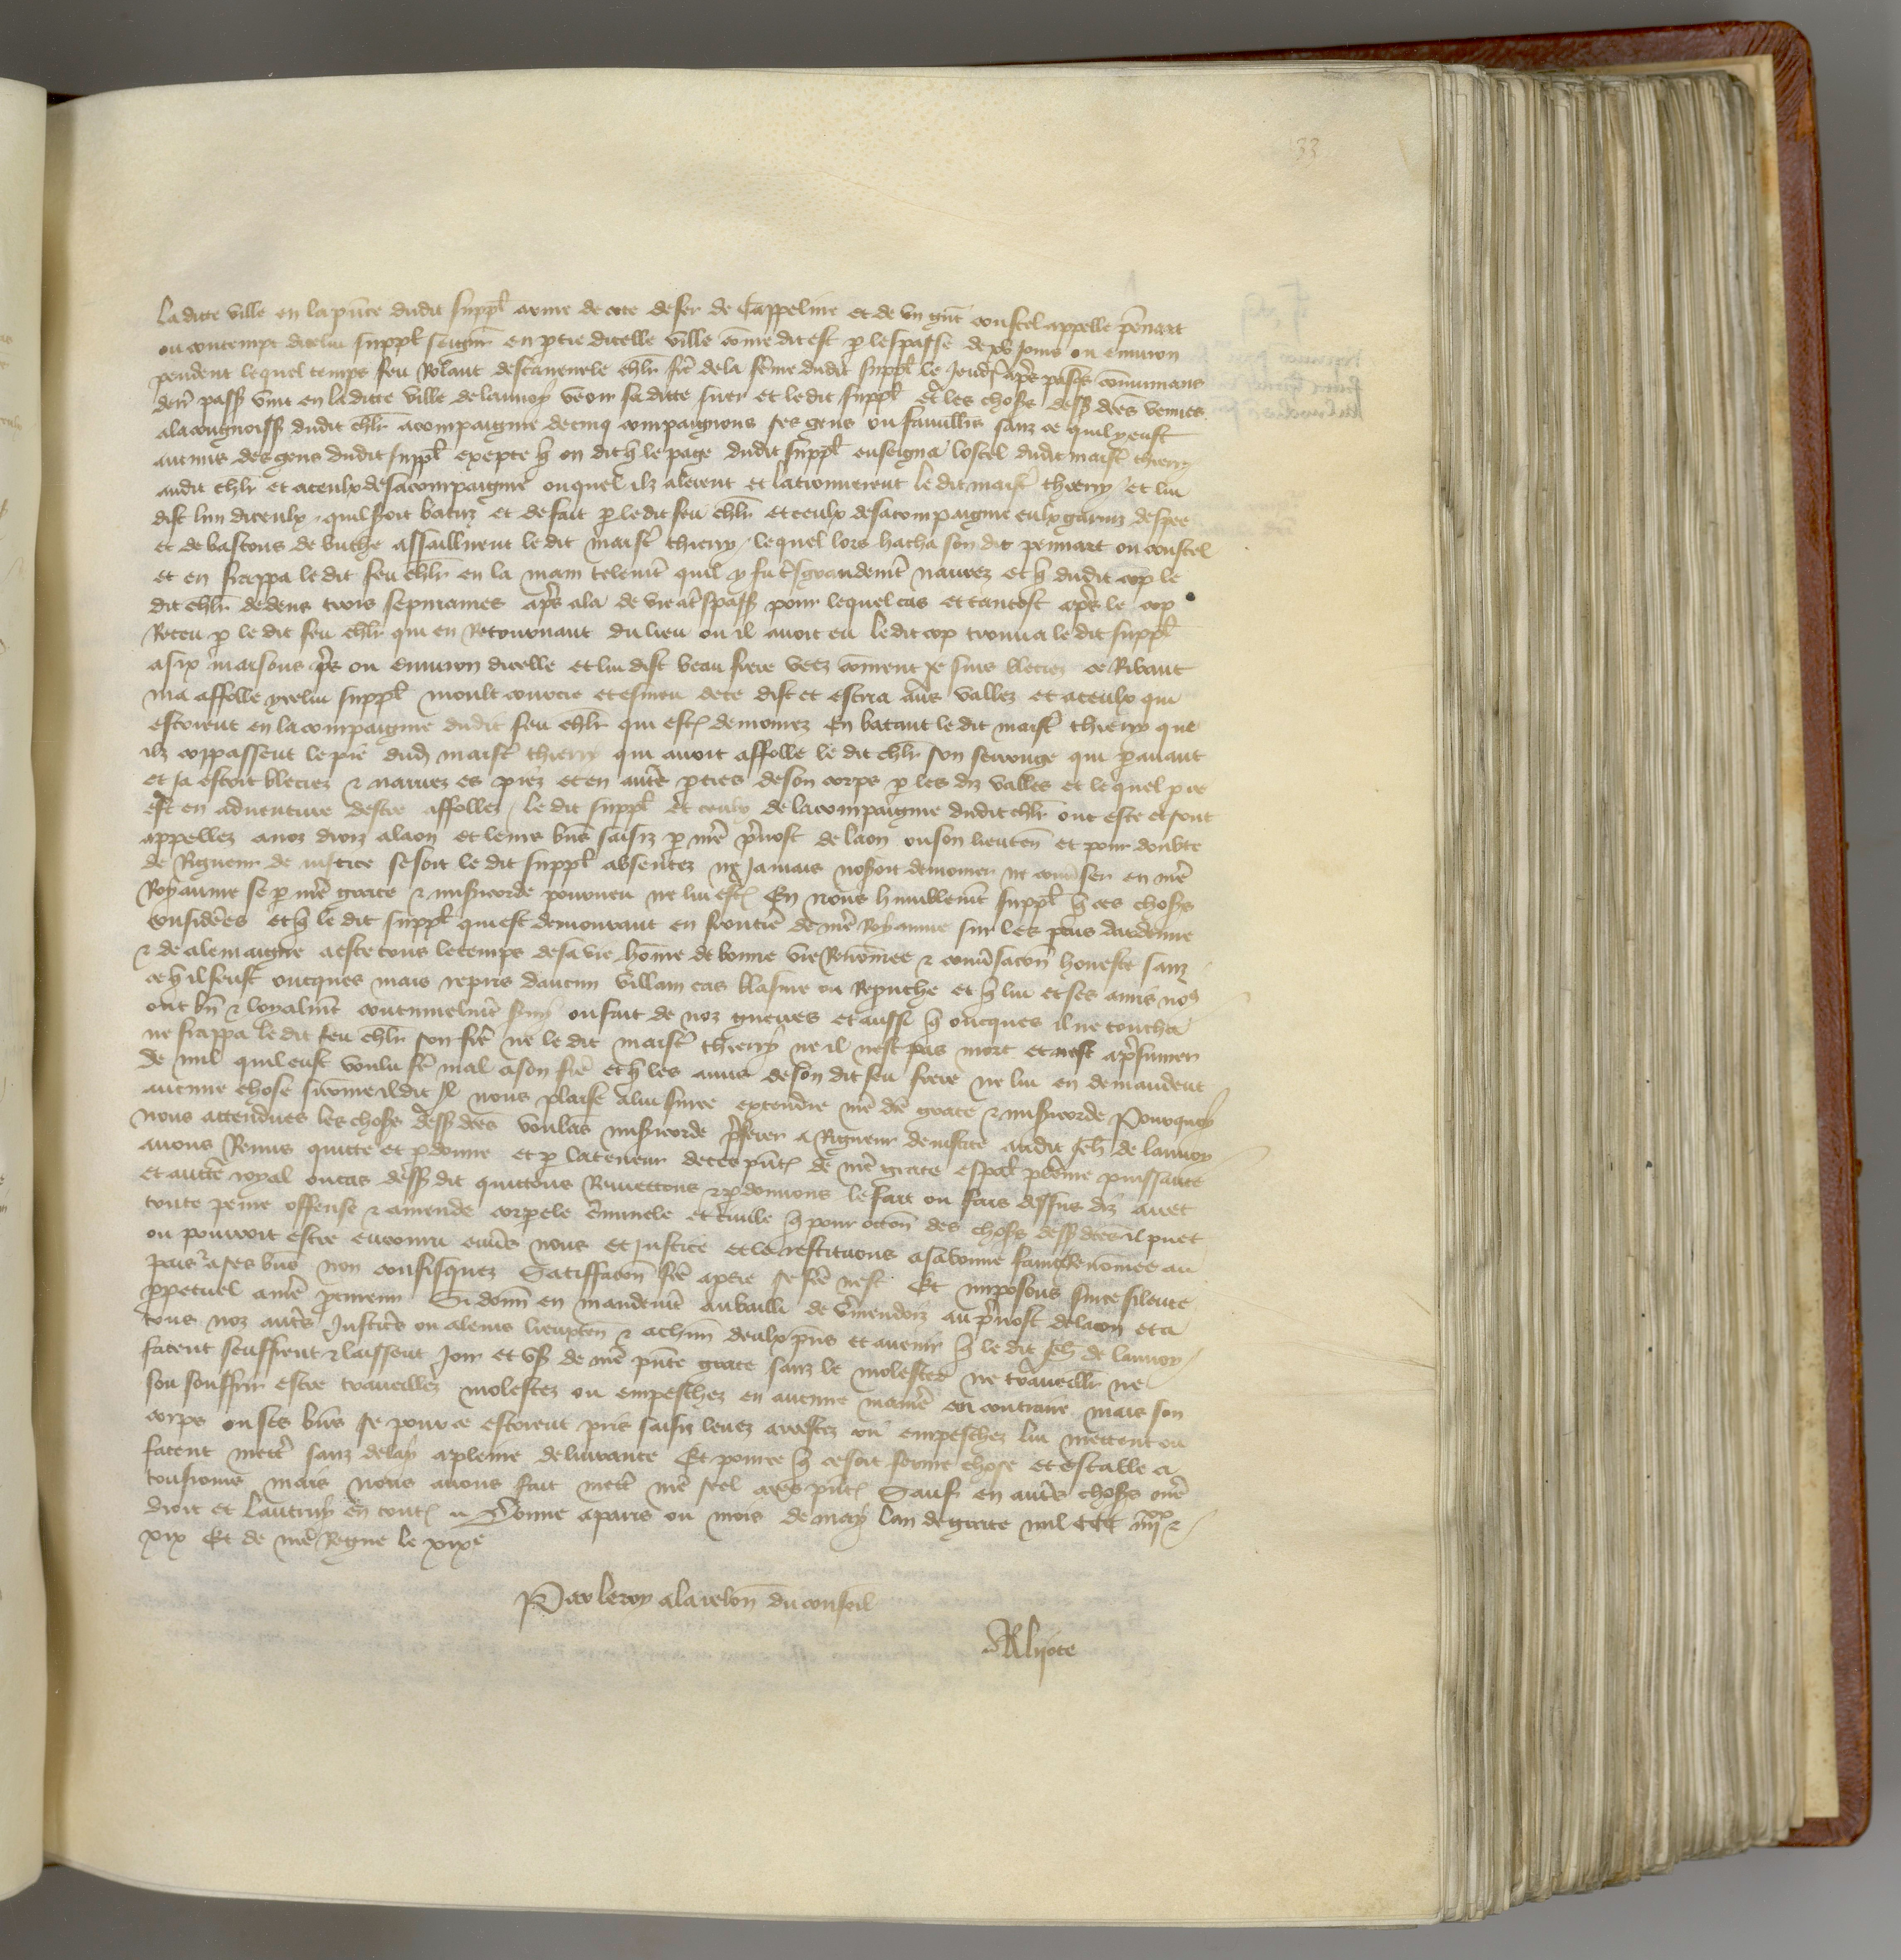 33
La dicte ville en la pñce dudit suppl̃ arme de cote de fer de Cappeline et de un gñt coustel appelle pẽnart
ou contempt dicelui suppl̃ seigñr en ptie dicelle ville cõme dit est p lespasse de xv jours ou environ
pendent lequel temps feu Rolant chlr̃ frẽ de la fẽme dudit suppl̃ le jeudi apr̃s pasques
derr̃ pass̃ vint en la dicte ville de lannoy veoir sa dicte suer et le dit suppl̃ et les choses dess̃ dc̃es venues
a la congnoiss̃ dudit chlr̃ acompaignie de cinq compaignons ses gens ou familliers sanz ce quil y eust
aucuns des gens dudit suppl̃ excepte q̃ on dit q̃ le page dudit suppl̃ enseigna lostel dudit maist̃ thierry
audit chlr̃ et a ceulx de sa compaignie ouquel ilz alerent et la trouverent le dit maist̃ thierry et lui
dist lun diceulx quil soit batuz et de fait p le dit feu chlr̃ et ceulx de sa compaignie eulx garniz despee
et de bastons de buche assaillirent le dit maist̃ thierry lequel lors hacha son dit pennart ou coustel
et en frappa le dit feu chlr̃ en la main telemt̃ quil y fu tr̃sgrandemt̃ navrez et q̃ dudit cop le
dit chlr̃ dedens trois sepmaines apr̃s ala de vie a tr̃spass̃ pour lequel cas et tantost apr̃s le cop
Receu p le dit feu chlr̃ qui en Retournant du lieu ou il avoit eu le dit cop trouva le dit suppl̃
a six maisons pr̃s ou environ dicelle et lui dist beau frere veez cõment je suis bleciez ce Ribaut
ma affolle ycelui suppl̃ moult courcie et esmeu de ce dist et escria aus vallez et a ceulx qui
estoient en la compaignie dudit feu chlr̃ qui est̃ demourez en batant le dit maist̃ thierry que
ilz coppassent le pie dud̃ maist̃ thierry qui avoit affolle le dit chlr̃ son serouge qui p avant
et ja estoit bleciez & navrez es piez et en autr̃e pties de son corps p les diz valles et lequel p ce
est en adventure destre affollez le dit suppl̃ et ceulx de la compaignie dudit chlr̃ ont este et sont
appellez a noz droiz a laon et leurs bñs saisiz p nr̃e pr̃vost de laon ou son lieuteñ et pour doubte
de Rigueur de justice se soit le dit suppl̃ absentez ne jamais noseroit demourer ne conv̾ser en nr̃e
Royaume se p nr̃e grace & miß̃icorde pourveu ne lui est̃ En nous humblemt̃ suppl̃ q̃ ces choses
consider̃es et q̃ le dit suppl̃ qui est demourant en frontier̃ de nr̃e Royaume sur les pties dardenne
& de alemaigne a este tous le temps de sa vie hõme de bonne vie Renõmee & conv̾sacõn honeste sanz
ce q̃ il feust oncques mais repris daucun villain cas blasme ou Reprouche et q̃ lui et ses amis nous
ont bñ & loyalmt̃ continuelmt̃ s̾vy ou fait de noz guerres et aussi q̃ oncques il ne toucha
ne frappa le dit feu chlr̃ son frẽ ne le dit maist̃ thierry ne il nest pas mort et nest a pr̃sumer
de nul quil eust voulu fr̃e mal a son frẽ et q̃ les amis de son dit feu frere ne lui en demandent
aucune chose si cõme il dit Il nous plaise a lui sur ce extendre nr̃e dc̃e grace & miß̃icorde Pour quoy
nous attendues les choses dess̃ dc̃es voulãs miß̃icorde pr̃ferer a Rigueur de justice audit Jeh̃ de lannoy
avons Remis quitte et pdonne et p la teneur de ces pñt̃ de nr̃e grace espãl pleine puissance
et auctr̃e royal ou cas dess̃ dit quittons Remettons & pdonnons le fait ou fais dessus diz avec
toute peine offense & amende corpele crĩminele et civile q̃ pour occõn des choses dess̃ dc̃es il puet
ou pourroit estre encouru env̾s nous et justice et le restituons a sa bonne fame Renõmee au
pais & a ses bñs non confisquez Satiffacõn fr̃e a ptie se fr̃e nest Et imposons sur ce silence
ppetuel a nr̃e pcureur Si donñ en mandemt̃ au bailli de vermendoiz au pr̃vost de laon et a
tous noz autr̃s Justicr̃s ou a leurs lieuxteñ & a chũn deulx pñs et avenir q̃ le dit Jeh̃ de lannoy
facent seuffrent & laissent joir et us̾ de nr̃e pñte grace sanz le molester ne travaillr̃ ne
son souffrir estre travaillez molestez ou empeschez en aucune manr̃e au contraire mais son
corps ou ses bñs se pour ce estoient pris saisiz levez arrestez ou empeschez lui mettent ou
facent mettr̃ sanz delay a pleine delivrance Et pour ce q̃ ce soit ferme chose et estable a
tousjours mais nous avons fait mettr̃ nr̃e seel a ces pñt̃ Sauf en autr̃s choses nr̃e
droit et lautruy en tout̃ Donne a paris ou mois de may lan de grace mil ccc iiii xx &
xix Et de nr̃e Regne le xix e
Par le roy a la relõn du conseil
Alijote